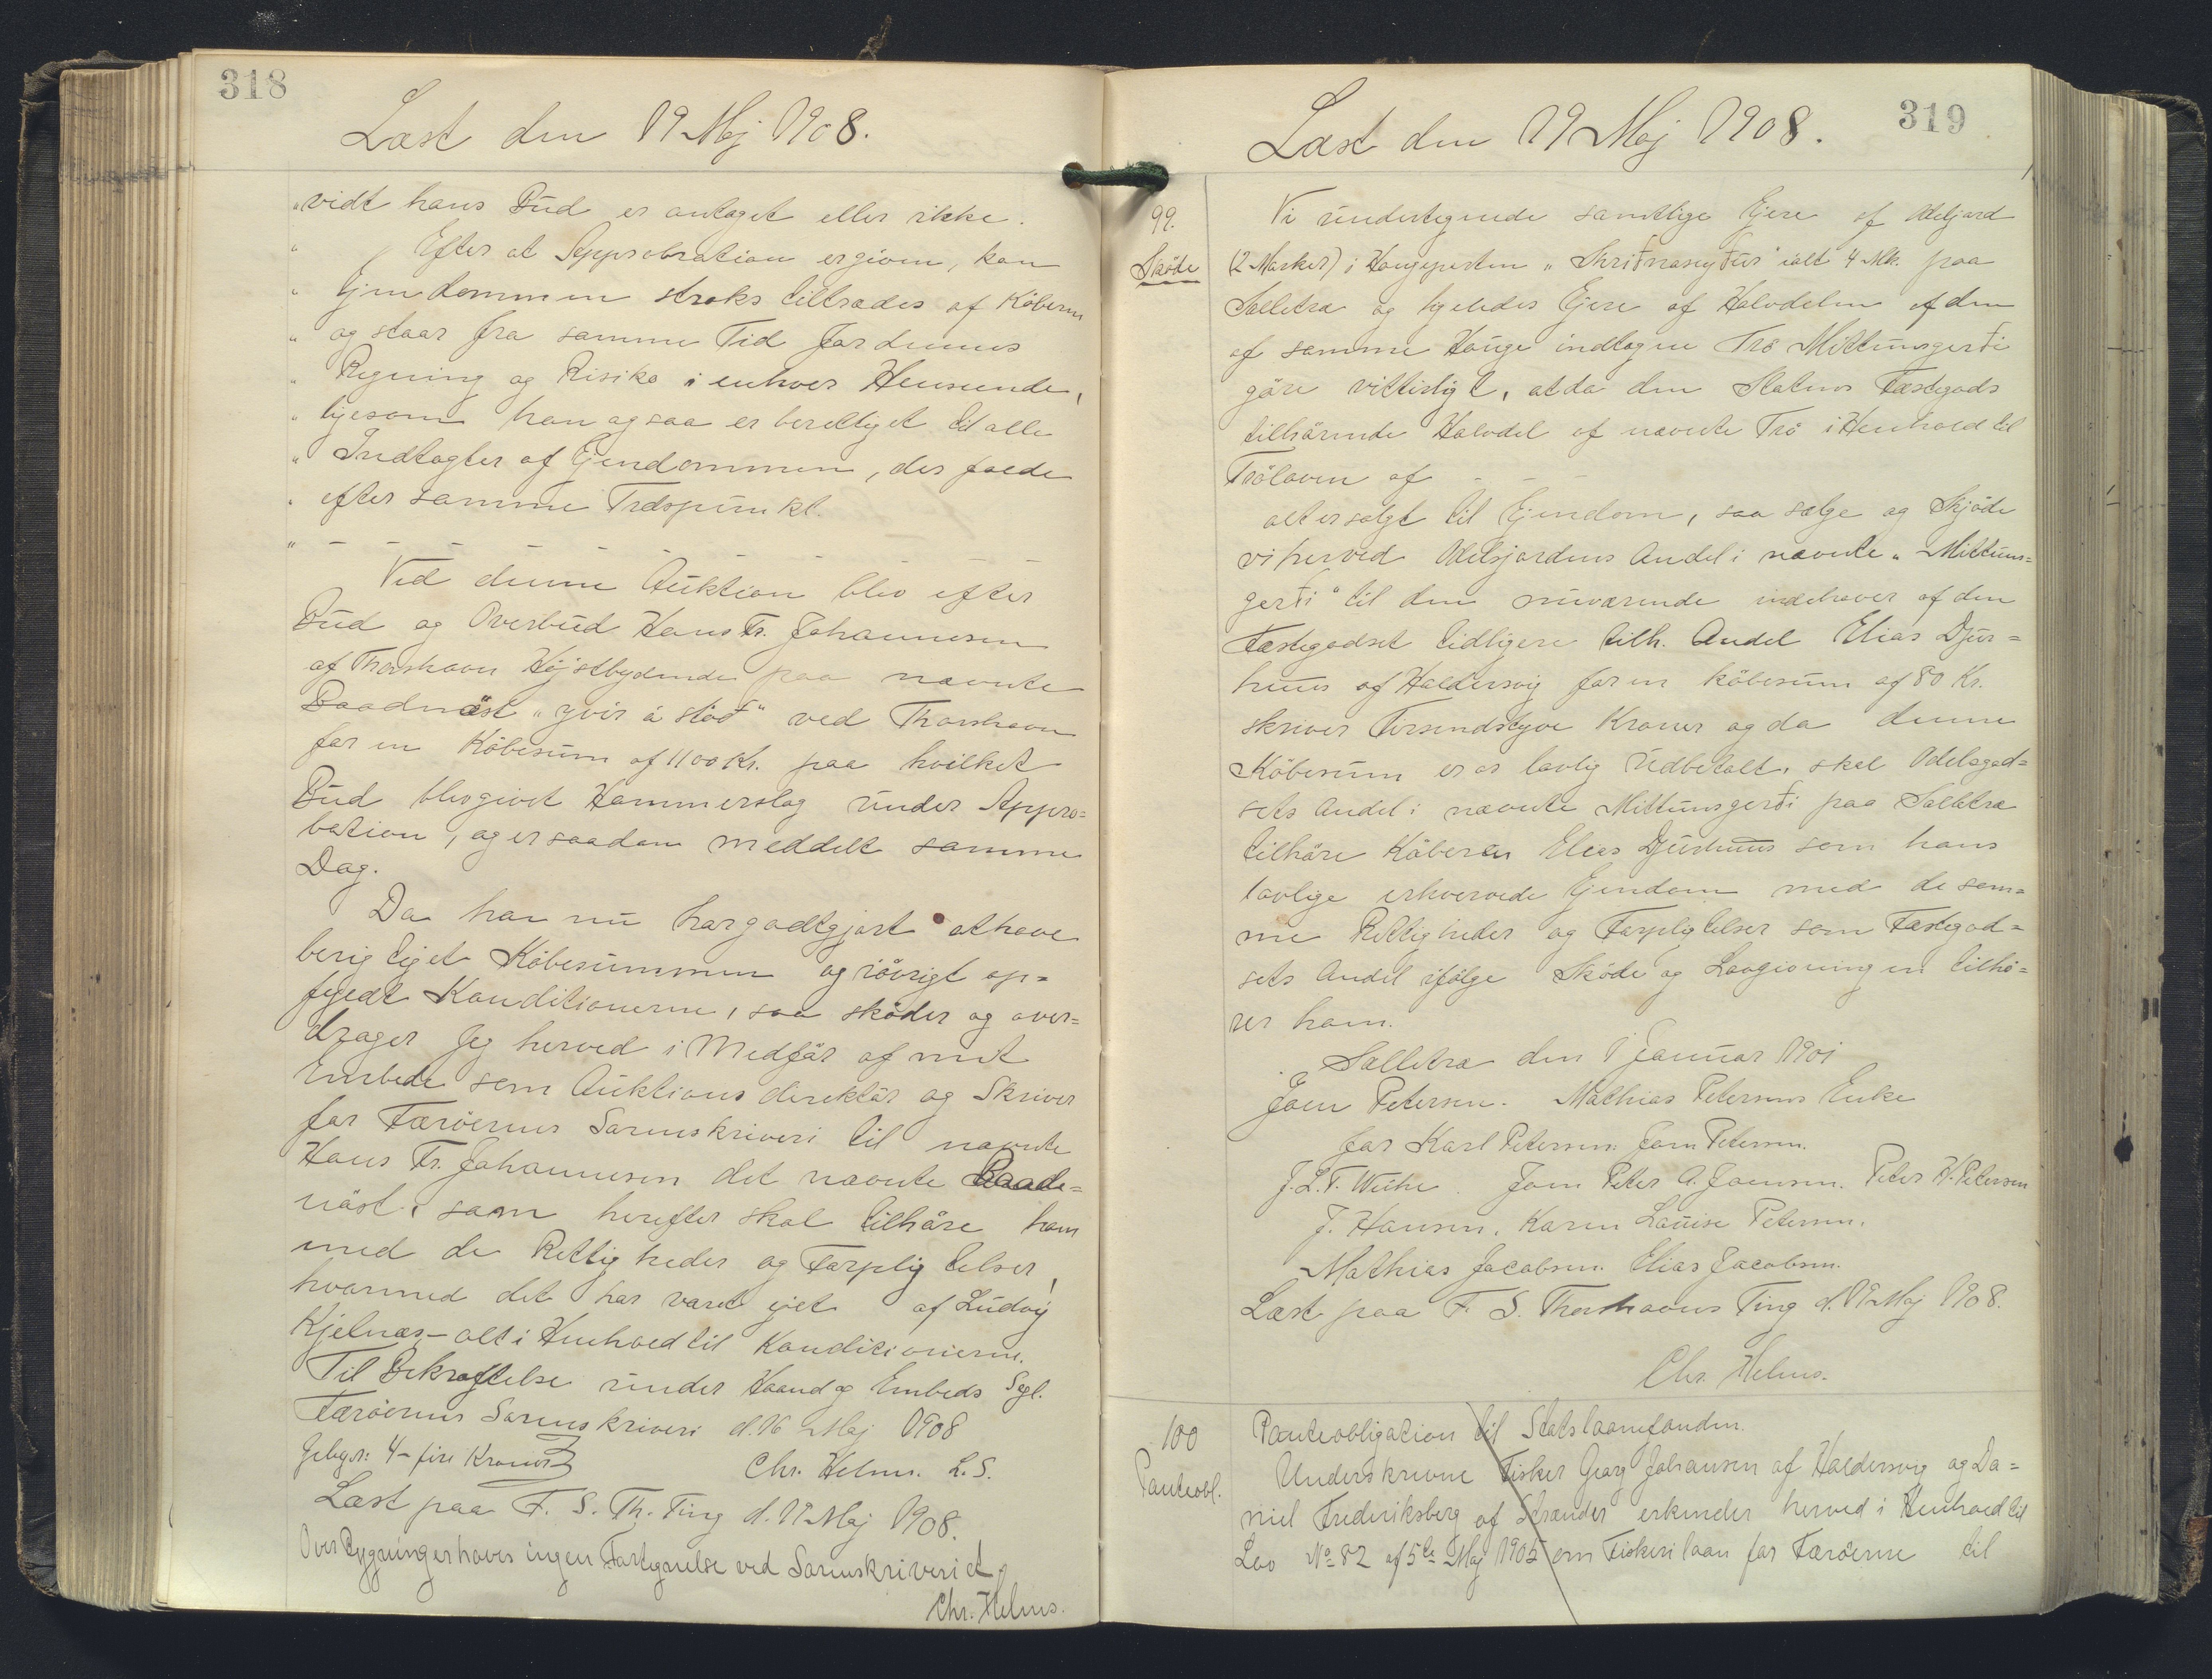 318
Læst den 19 Maj 1908.
"vidt hans Bud er antaget eller ikke.
" Efter at Approbration er given, kan
" Ejendommen straks tiltrædes af Köberen
" og staar fra samme Tid for dennes
" Regning og Risiko i enhver Henseende,
" ligesom han ogsaa er berettiget til alle
" Indtægter af Ejendommen, der falde
" efter samme Tidspunkt.
" – – – – – – – –
Ved denne Auktion blev efter
Bud og Overbud Hans Fr. Johannesen
af Thorshavn Højstbydende paa nævnte
Baadnöst "yvir á stöð" ved Thorshavn
for en Köbesum af 1100 Kr. paa hvilket
Bud blev givet Hammerslag under Appro=
bation, og er saadan meddelt samme
Dag.
Da han nu har godtgjort at have
berigtiget Köbesummen og iövrigt op=
fyldt Konditionerne, saa sköder og over=
drager Jeg herved i Medfør af mit
Embede som Auktionsdirektör og Skriver
for Færöernes Sorenskriveri til nævnte
Hans Fr. Johannesen det nævnte Baade=
nöst, som herefter skal tilhöre ham
med de Rettigheder og Forpligtelser,
hvormed det har været ejet af Ludvig
Kjelnæs – alt i Henhold til Konditionerne.
Til Bekræftelse under Haand og Embeds Segl.
Færöernes Sorenskriveri d. 16 Maj 1908
Gebyr: 4 – fire Kroner
Chr. Helms. L.S.
Læst paa F. S. Th. Ting d. 19 Maj 1908.
Over Bygninger haves ingen Fortegnelse ved Sorenskriveriet
Chr. Helms.
319
Læst den 19 Maj 1908.
99.
Sköde
Vi undertegnede samtlige Ejere af Odeljord
(2 Marker) i Haugeparten " ialt 4 Mk. paa
Salletræ og ligeledes Ejere af Halvdelen af den
af samme Hauge indtagne Trö Mittunsgerði
göre vitterligt, at da den Statens Fæstegods
tilhörende Halvdel af nævnte Trö i Henhold til
Tröloven af – – –
alt er solgt til Ejendom, saa sælge og Skjöde
vi herved Odelsjordens Andel i nævnte "Mittuns=
gerði" til den nuværende indehaver af den
Fæstegodset tidligere tilh. Andel Elias Djur=
huus af Haldersvig for en köbesum af 80 Kr.
skriver Firsindstyve Kroner og da denne
Köbesum er os lovlig Udbetalt, skal Odelsgod=
sets Andel i nævnte Mittunsgerði paa Salletræ
tilhöre Köberen Elias Djurhuus som hans
lovlige erhvervede Ejendom med de sam=
me Rettigheder og Forpligtelser som Fæstegod=
sets Andel ifölge Sköde og Lovgivningen tilhö=
rer ham.
Salletræ den 1 Januar 1901
Joen Petersen. Mathias Petersens Enke
for Karl Petersen. Joen Petersen.
J. L. T. Weihe. Joen Peter A. Joensen. Peter H. Petersen
J. Hansen. Karen Lauise Petersen.
Mathias Jacobsen. Elias Jacobsen.
Læst paa F. S. Thorshavns Ting d. 19 Maj 1908.
Chr. Helms.
100
Panteobl.
Panteobligation til Statslaanefonden.
Underskrevne Fisker Georg Johansen af Haldersvig og Da=
niel Frederiksberg af Strænder erkender herved i Henhold til
Lov No 82 af 5te Maj 1905 om Fiskerilaan for Færöerne til